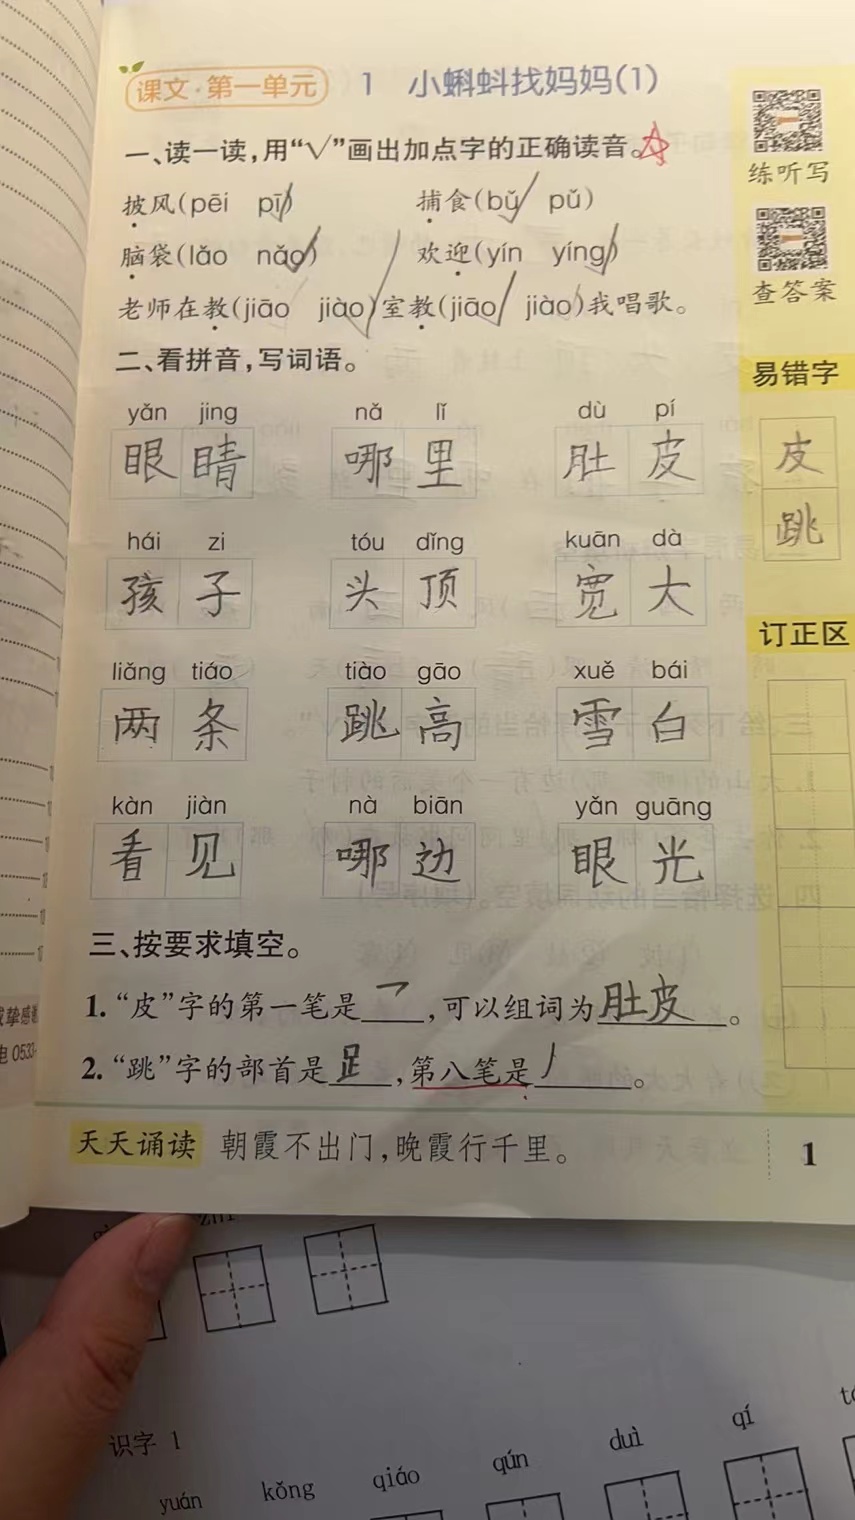 课文·第一单元 1 小蝌蚪找妈妈(1)
一、读一读,用“√”画出加点字的正确读音。
披风(pēi pī) 捕食(bǔ pǔ)
脑袋(lǎo nǎo) 欢迎(yín yíng)
老师在教(jiāo jiào)室教(jiāo jiào)我唱歌。
二、看拼音,写词语。
yǎn jing nǎ lǐ dù pí
眼睛 哪里 肚皮
hái zi tóu dǐng kuān dà
孩子 头顶 宽大
liǎng tiáo tiào gāo xuě bái
两条 跳高 雪白
kàn jiàn nà biān yǎn guāng
看见 哪边 眼光
三、按要求填空。
1.“皮”字的第一笔是乛,可以组词为肚皮。
2.“跳”字的部首是𧾷,第八笔是丿。
天天诵读 朝霞不出门,晚霞行千里。
1
练听写
查答案
易错字
皮
跳
订正区
识字 1
yuán kǒng qiáo qún duì qí